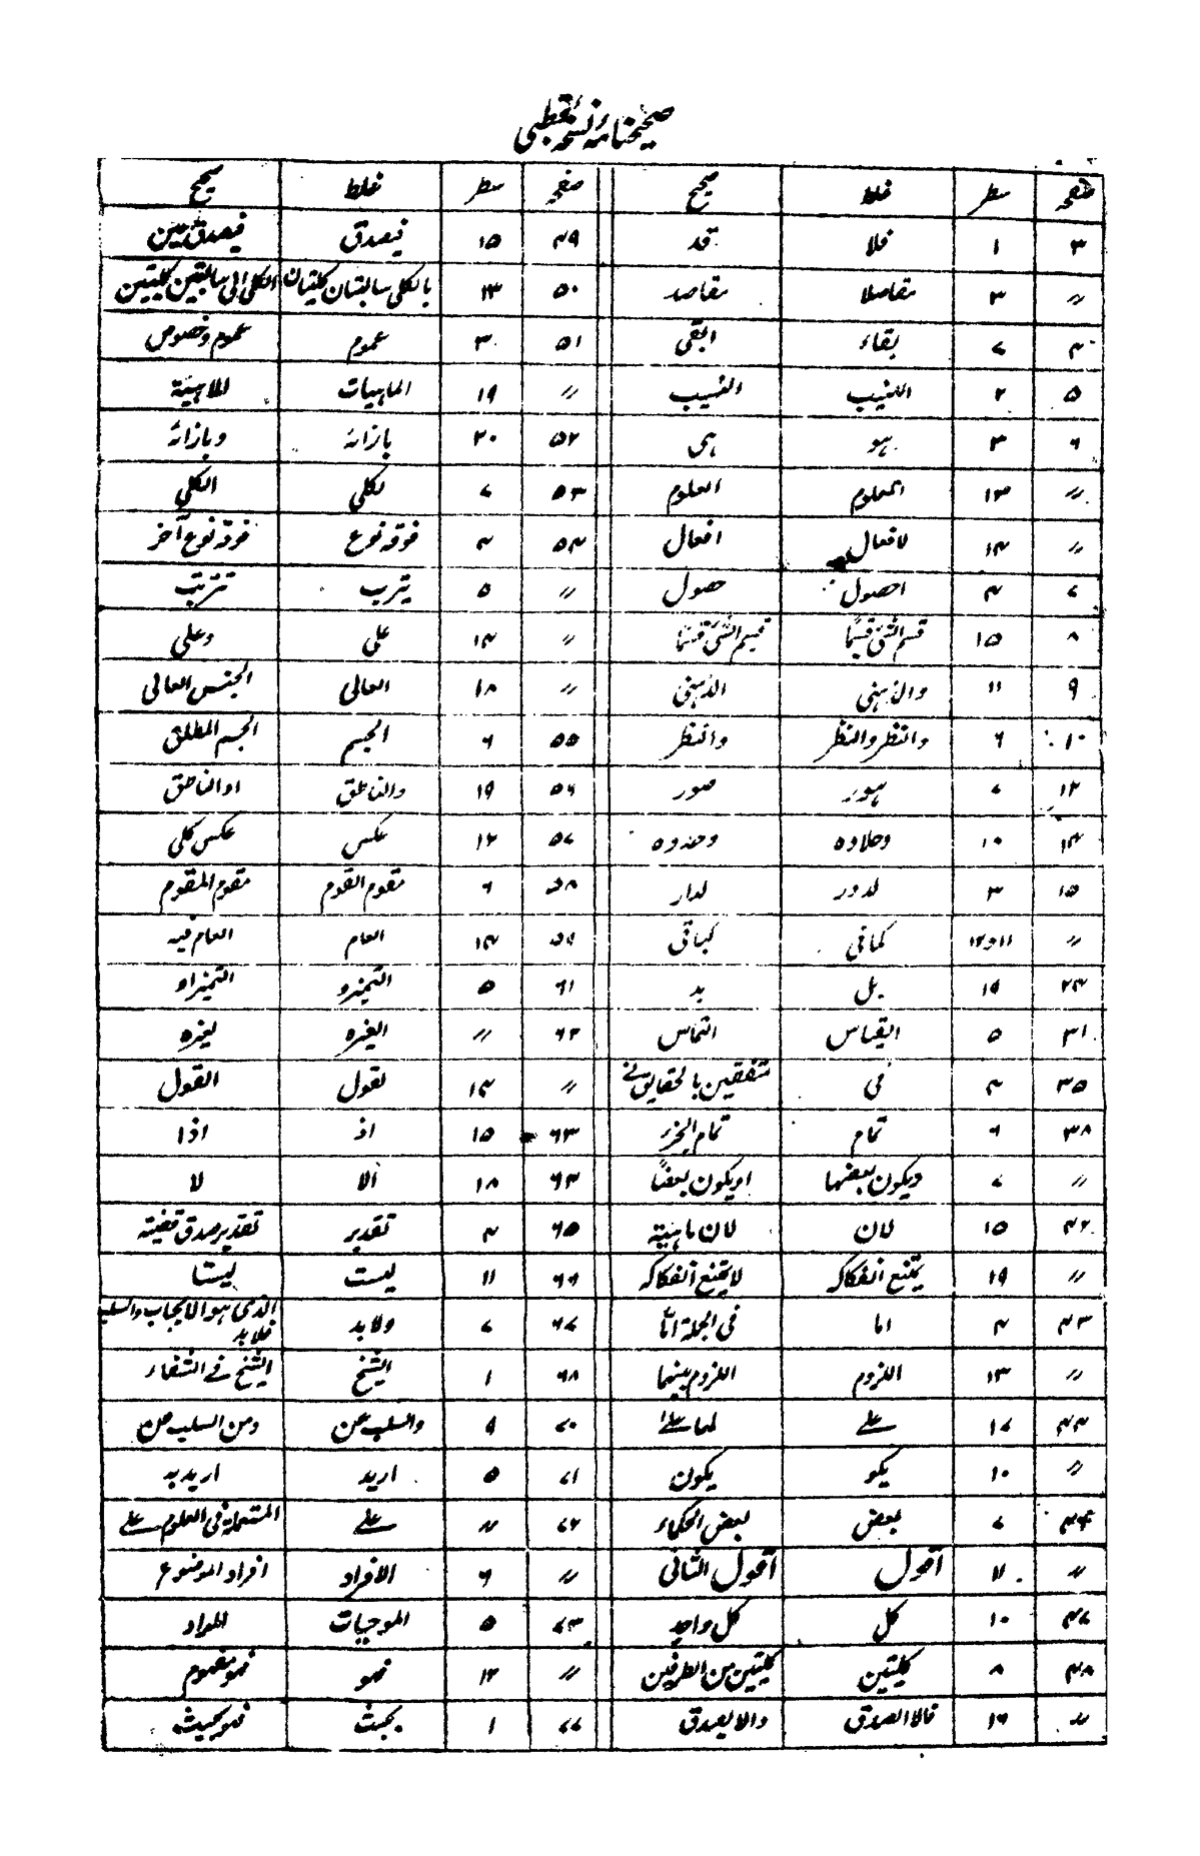 صحیحنامہ نسخہ قطبی
صفحہ سطر غلط صحیح صفحہ سطر غلط صحیح
۳ ۱ فلا قد ۴۹ ۱۵ فیصدق فیصدق بین
〃 ۳ مقاصلا مقاصد ۵۰ ۱۳ بالکلی سالبتان کلیتان الکلی الی سالبتین کلیتین
۴ ۷ بقاء ابقی ۵۱ ۳ عموم عموم وخصوص
۵ ۲ النیب النسیب 〃 ۱۹ الماہیات الماہیۃ
۶ ۳ ہو ہی ۵۲ ۲۰ بازائہ وبازائہ
〃 ۱۳ المعلوم العلوم ۵۳ ۷ لکلی الکلی
〃 ۱۴ لافعال افعال ۵۴ ۴ فوقہ نوع فوقہ نوع آخر
۷ ۴ احصول حصول 〃 ۵ یترب تترتب
۸ ۱۵ قسم الشئ قسیمًا قسیم الشئ قسمًا 〃 ۱۴ علی وعلی
۹ ۱۱ والذہنی الذہنی 〃 ۱۸ العالی الجنس العالی
۱۰ ۶ والنظر والنظر والنظر ۵۵ ۶ الجسم الجسم المطلق
۱۲ ۷ ہور صور ۵۶ ۱۹ والناطق اوالناطق
۱۴ ۱۰ وحلاوہ وحدوہ ۵۷ ۱۲ عکس عکس کلی
۱۵ ۳ لدور لدار ۵۸ ۶ مقوم القوم مقوم المقوم
〃 ۱۱و۱۲ کمافی کباقی ۵۹ ۱۴ العام العام فیہ
۲۴ ۱۹ بل بد ۶۱ ۵ التمیزو التمیزاو
۳۱ ۵ القیاس التماس ۶۲ 〃 الغیرہ لغیرہ
۳۵ ۴ فی متفقین بالحقایق فے 〃 ۱۴ لقول القول
۳۸ ۶ تمام تمام الجزء ۶۳ ۱۵ اذ اذا
〃 ۷ ویکون بعضہا اویکون بعضًا ۶۴ ۱۸ الا لا
۴۲ ۱۵ لان لان ماہیۃ ۶۵ ۴ تقدیر تقدیر صدق قضیۃ
〃 ۱۹ یمتنع انفکاکہ لا یمتنع انفکاکہ ۶۶ ۱۱ لیست لیستا
۴۳ ۴ اما فی الجملۃ امّا ۶۷ ۷ ولابد الذی ہو الایجاب والسلب فلابد
〃 ۱۳ اللزوم اللزوم بینہما ۶۸ ۱ الشیخ الشیخ فے الشفاء
۴۴ ۱۷ علے لما علے ۷۰ ۹ والسلب عن ومن السلب عن
〃 ۱۰ یکو یکون ۷۱ ۵ ارید ارید بہ
۴۶ ۷ بعض بعض الحکماء ۷۲ 〃 علے المستعملۃ فی العلوم علے
〃 ۱۱ اقول اقول الثانی 〃 ۶ الافراد افراد الموضوع
۴۷ ۱۰ کل کل واحد ۷۳ ۵ الموجبات المراد
۴۸ ۸ کلیتین کلیتین من الطرفین 〃 ۱۲ فہو فہو مفہوم
〃 ۱۶ فالا الصدق والا یصدق ۷۷ ۱ بحیث فہو بحیث